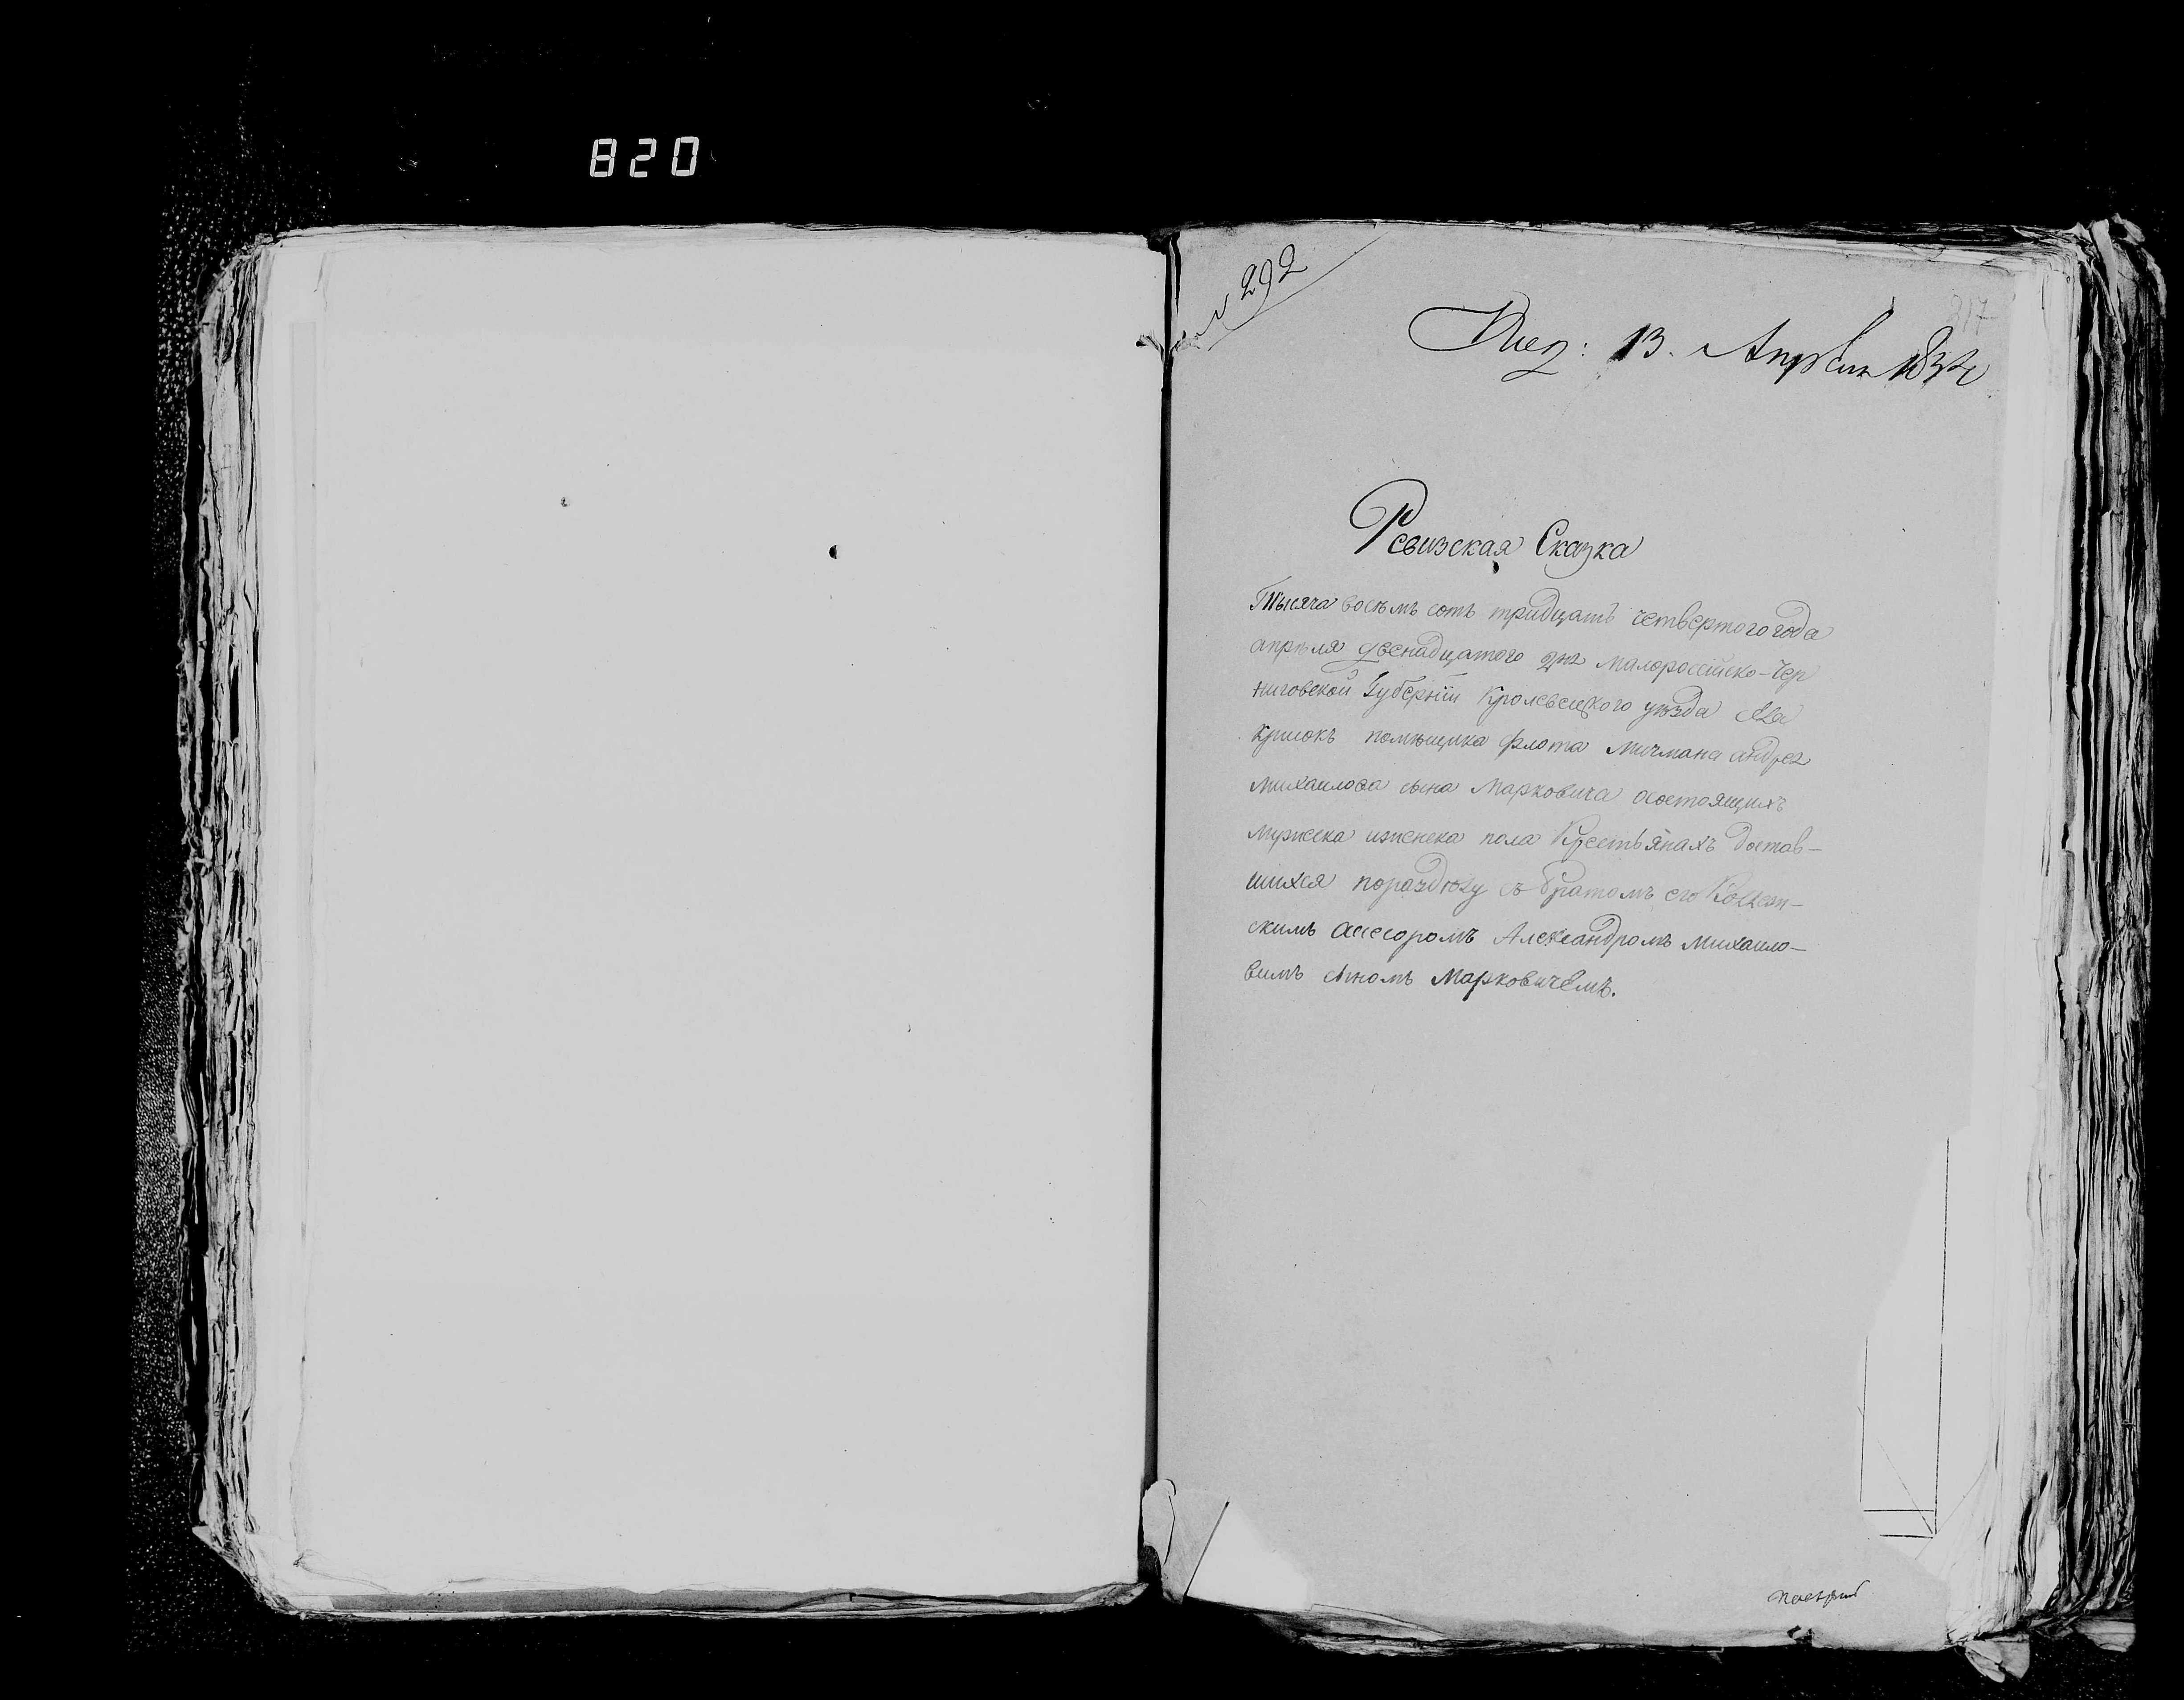 820
№ 292
217
13. Апреля 1834
Ревизская Сказка
Тысяча восемъ сотъ тридцать четвертого года
апреля двенадцатого дня Малороссійско-Чер
ниговской Губерніи Кролевецкого уѣзда
помѣщика флота Мичмана андрея
Михаилова сына Марковича осостоящихъ
мужеска иженска пола Крестьянахъ достав-
шихся пораздѣлу съ братомъ его Коллеж-
скимъ Асессоромъ Александромъ Михаило-
вимъ сыномъ Марковичемъ.